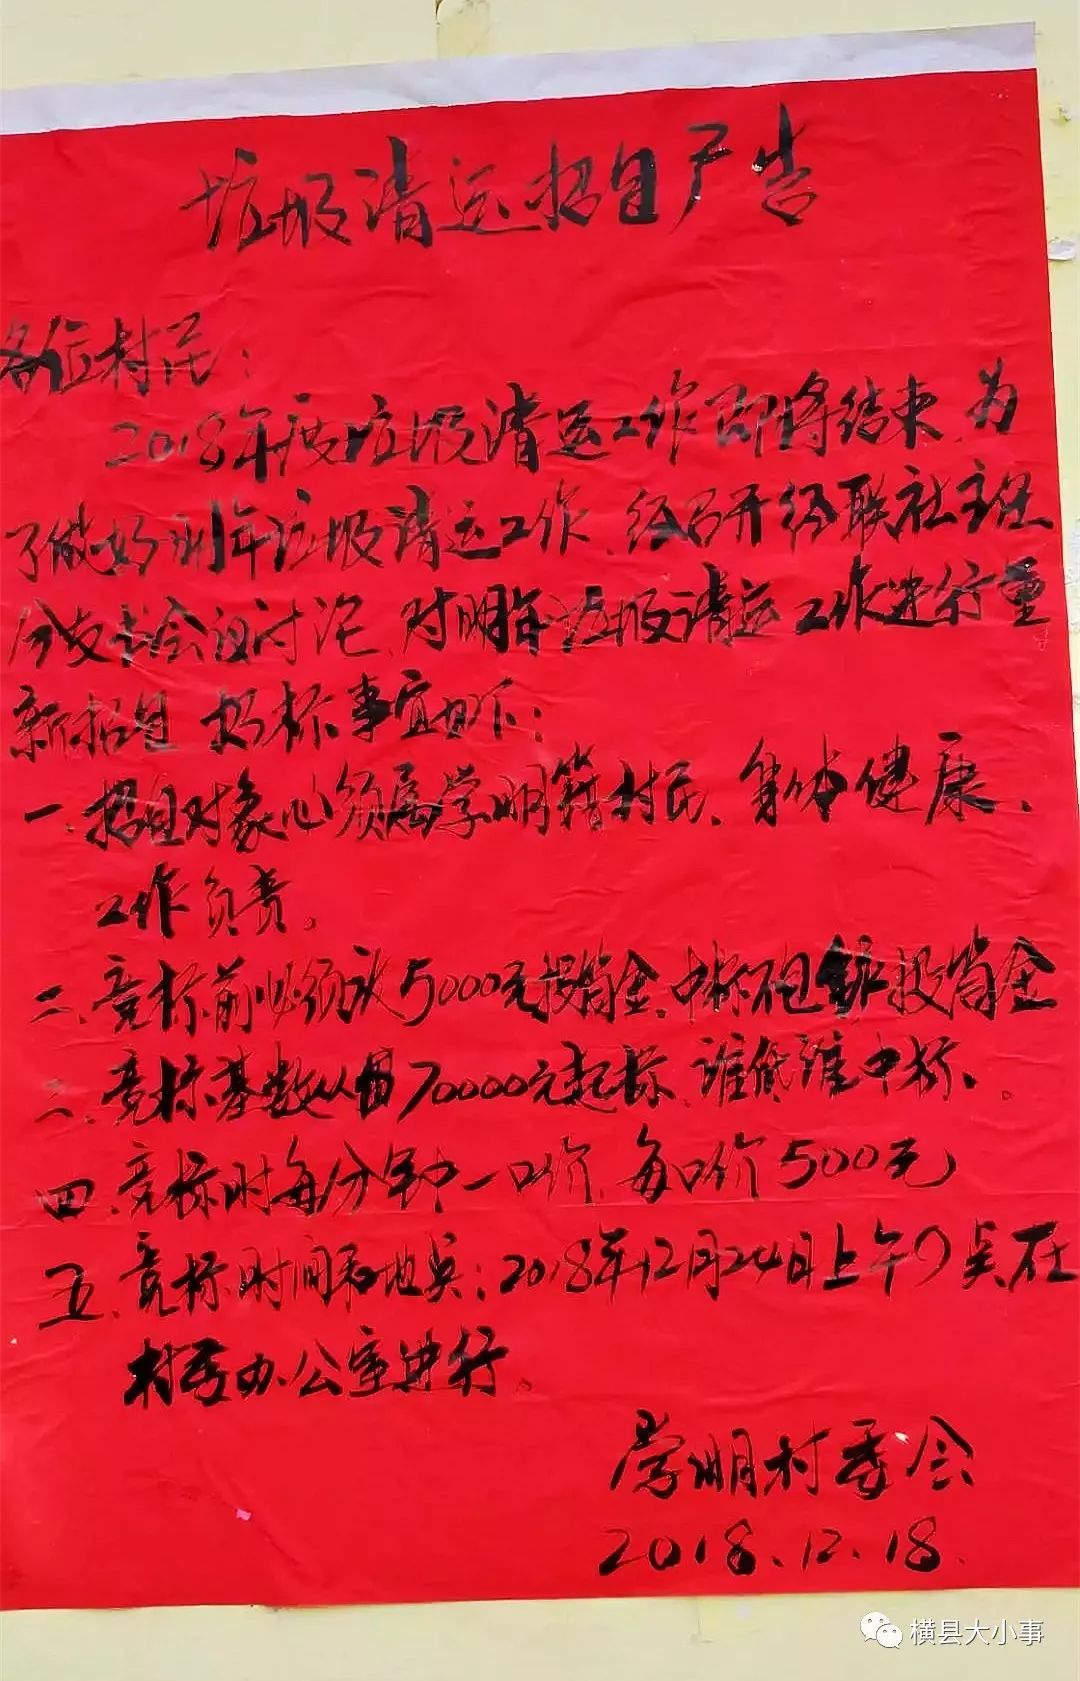 垃圾清运招自广告
各位村民：
2018年度垃圾清运工作即将结束、为
了做好明年垃圾清运工作、经召开经联社主任
分支书会议讨论、对明年垃圾清运工作进行重
新招自 招标事宜如下：
一、招自对象必须属学明籍村民、身体健康、
工作负责。
二、竞标前必须交5000元投资金、中标 投资金
竞标基数从 70000元起标、谁低谁中标、。
四、竞标时每分钟一口价、每口价500元
五、竞标时间和地点：2018年12月24日上午9点在
村委办公室进行。
学明村委会
2018.12.18.
横县大小事